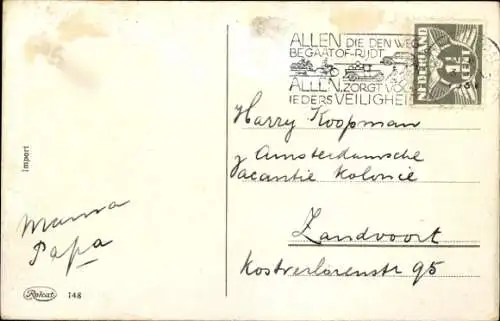 ALLEN DIE DEN WEG
BEGAAT OF-RIJDT
ALLEN ZORGT VOO
IEDERS VEILIGHEI
NEDERLAND
CENT
Harry Koopman
p/a Amsterdamsche
vacantie Kolonie
Zandvoort
Kostverlorenstr 95
Mama
Papa
Import
Rokat 148